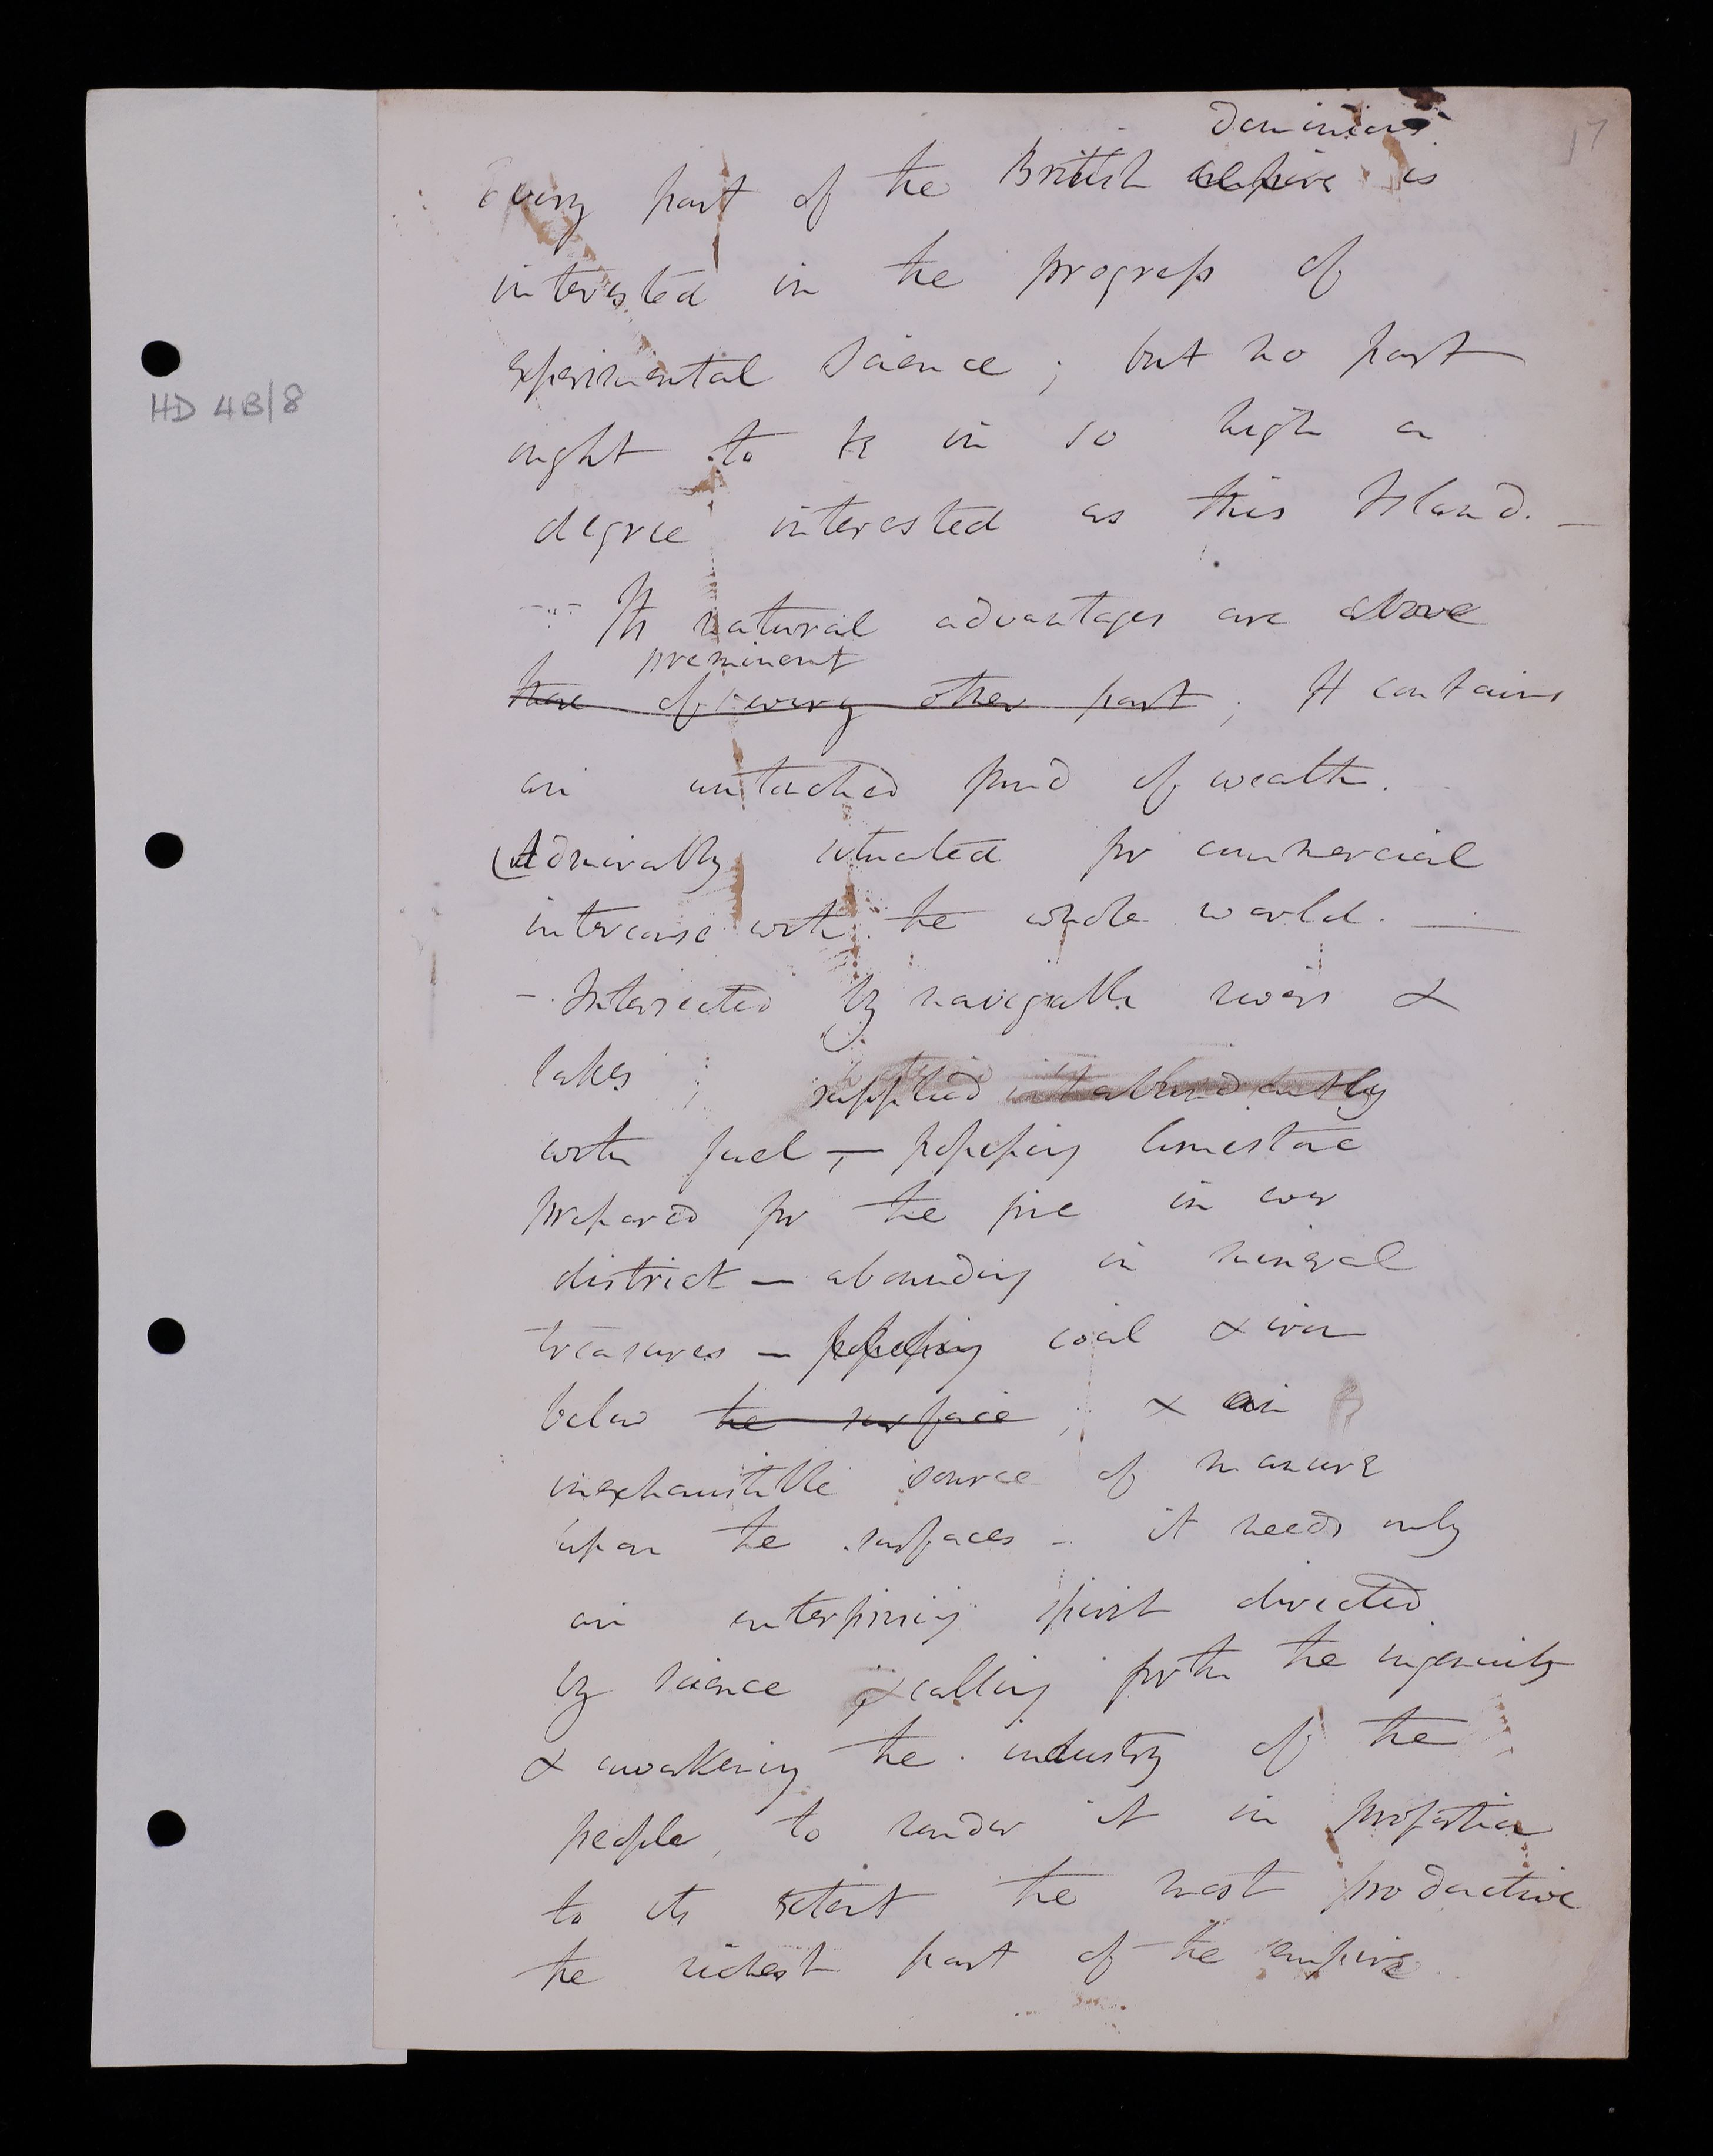 17
HD 4B/8
Dominions
Every part of the British empire is
interested in the progress of
experimental science; but no part
ought to be in so high a
degree interested as this Island. —
Its natural advantages are above
preminent
those of every other part; It contains
an untouched fund of wealth.
Admirably situated for commercial
intercourse with the whole world. —
- Intersected by navigable rivers &
lakes; supplied abundantly
with fuel, — possessing limestone
prepared for the fire in every
district — abounding in mineral
treasures — possessing coal & iron
below the surface; & an
inexhaustible source of manure
upon the surface - it needs only
an enterprising spirit directed
by science & calling forth the ingenuity
& awakening the industry of the
people, to render it in proportion
to its extent the most productive
the richest part of the empire